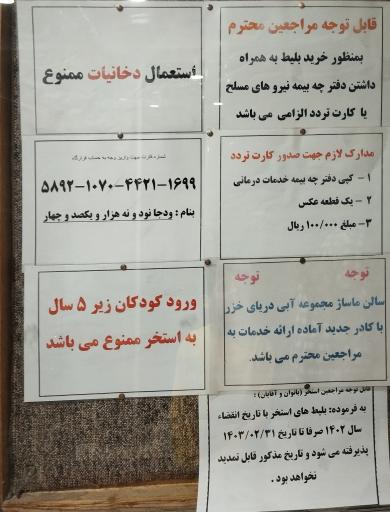 قابل توجه مراجعین محترم
بمنظور خرید بلیط به همراه
داشتن دفتر چه بیمه نیرو های مسلح
یا کارت تردد الزامی می باشد
استعمال دخانیات ممنوع
مدارک لازم جهت صدور کارت تردد
۱- کپی دفتر چه بیمه خدمات درمانی
۲- یک قطعه عکس
۳- مبلغ ۱۰۰/۰۰۰ ریال
شماره کارت جهت واریز وجه به حساب قرارگاه
۵۸۹۲-۱۰۷۰-۴۴۲۱-۱۶۹۹
بنام : ودجا نود و نه هزار و یکصد و چهار
توجه توجه
سالن ماساژ مجموعه آبی دریای خزر
با کادر جدید آماده ارائه خدمات به
مراجعین محترم می باشد.
ورود کودکان زیر ۵ سال
به استخر ممنوع می باشد
قابل توجه مراجعین استخر (بانوان و آقایان) :
به فرموده: بلیط های استخر با تاریخ انقضاء
سال ۱۴۰۲ صرفا تا تاریخ ۱۴۰۳/۰۲/۳۱
پذیرفته می شود و تاریخ مذکور قابل تمدید
نخواهد بود .